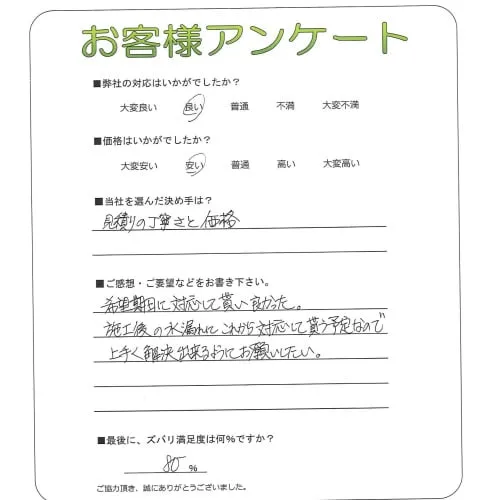 お客様アンケート
■弊社の対応はいかがでしたか？
大変良い 良い 普通 不満 大変不満
■価格はいかがでしたか？
大変安い 安い 普通 高い 大変高い
■当社を選んだ決め手は？
見積りの丁寧さと価格
■ご感想・ご要望などをお書き下さい。
希望期日に対応して貰い良かった。
施工後の水漏れにこれから対応して貰う予定なので
上手く解決出来るようにお願いしたい。
■最後に、ズバリ満足度は何％ですか？
80 %
ご協力頂き、誠にありがとうございました。